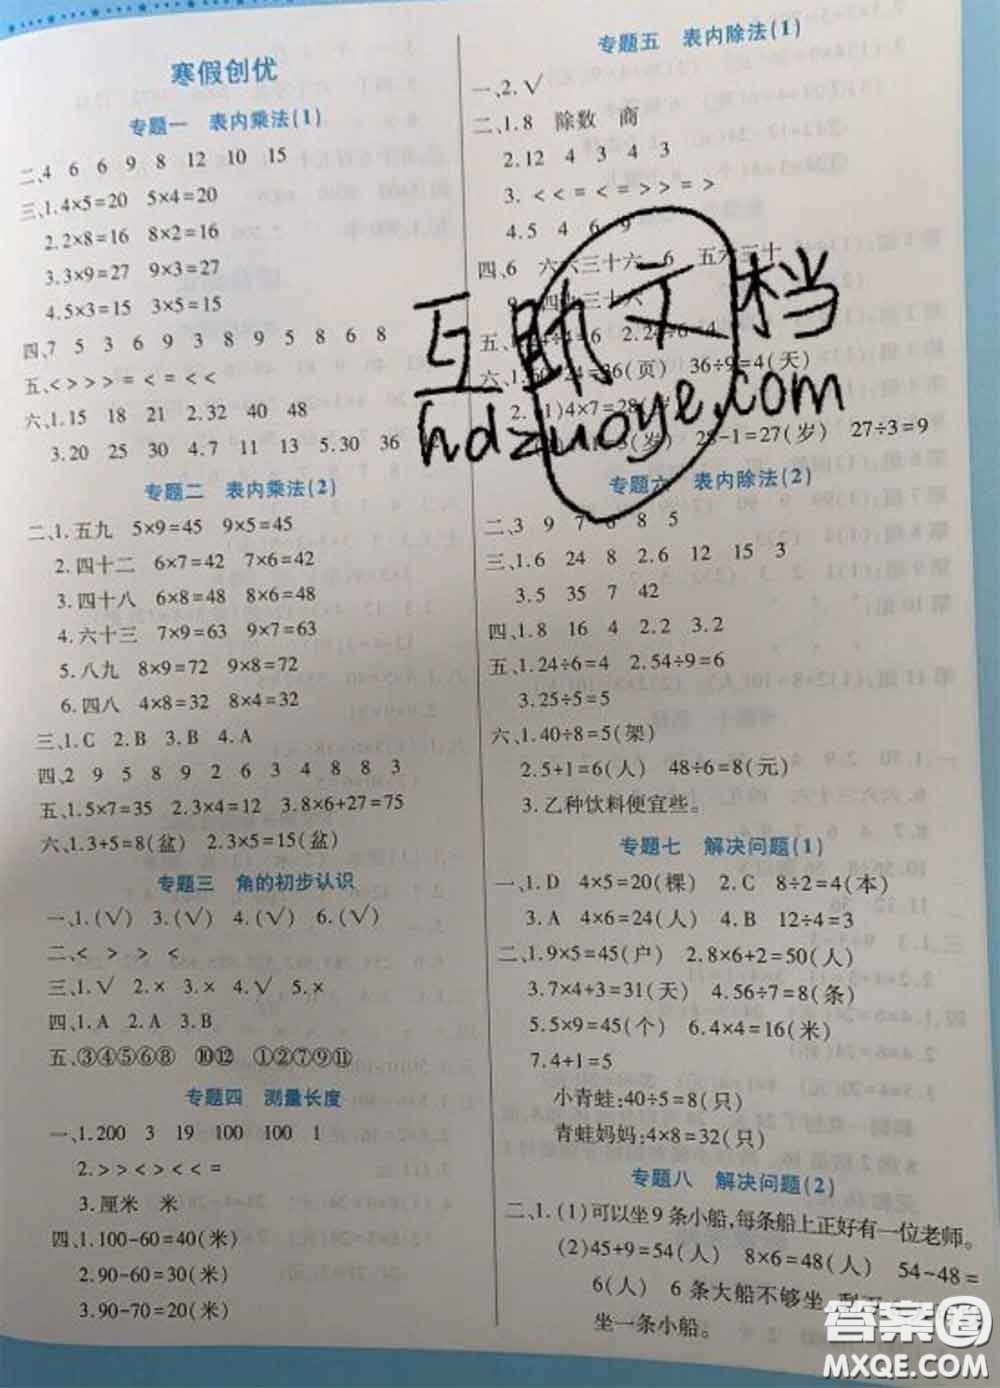 寒假创优
专题一 表内乘法(1)
二、4 6 6 9 8 12 10 15
三、1.4×5=20 5×4=20
2.2×8=16 8×2=16
3.3×9=27 9×3=27
4.5×3=15 3×5=15
四、7 5 3 6 9 3 8 9 5 8 6 8
五、< > > > = < = < <
六、1.15 18 21 2.32 40 48
3.20 25 30 4.7 9 11 5.30 36
专题二 表内乘法(2)
二、1.五九 5×9=45 9×5=45
2.四十二 6×7=42 7×6=42
3.四十八 6×8=48 8×6=48
4.六十三 7×9=63 9×7=63
5.八九 8×9=72 9×8=72
6.四八 4×8=32 8×4=32
三、1.C 2.B 3.B 4.A
四、2 9 5 8 9 2 6 3 4 8 8 3
五、1.5×7=35 2.3×4=12 3.8×6+27=75
六、1.3+5=8(盆) 2.3×5=15(盆)
专题三 角的初步认识
一、1.(√) 3.(√) 4.(√) 6.(√)
二、< > > <
三、1.√ 2.× 3.× 4.√ 5.×
四、1.A 2.A 3.B
五、③④⑤⑥⑧ ⑩⑫ ①②⑦⑨⑪
专题四 测量长度
一、1.200 3 19 100 100 1
2.> > < > < < =
3.厘米 米
四、1.100-60=40(米)
2.90-60=30(米)
3.90-70=20(米)
专题五 表内除法(1)
一、2.√
二、1.8 除数 商
2.12 4 3 4 3
3.< < = < = > > = >
4.5 4 6 9
四、6 六六三十六 6 五六三十
9 四九三十六
五、1.24÷4=6 2.24÷6=4
六、1.60-24=36(页) 36÷9=4(天)
2.(1)4×7=28(岁)
(岁) 28-1=27(岁) 27÷3=9
专题六 表内除法(2)
二、3 9 7 6 8 5
三、1.6 24 8 2.6 12 15 3
3.5 35 7 42
四、1.8 16 4 2.2 3.2
五、1.24÷6=4 2.54÷9=6
3.25÷5=5
六、1.40÷8=5(架)
2.5+1=6(人) 48÷6=8(元)
3.乙种饮料便宜些。
专题七 解决问题(1)
一、1.D 4×5=20(棵) 2.C 8÷2=4(本)
3.A 4×6=24(人) 4.B 12÷4=3
二、1.9×5=45(户) 2.8×6+2=50(人)
3.7×4+3=31(天) 4.56÷7=8(条)
5.5×9=45(个) 6.4×4=16(米)
7.4+1=5
小青蛙:40÷5=8(只)
青蛙妈妈:4×8=32(只)
专题八 解决问题(2)
二、1.(1)可以坐9条小船,每条船上正好有一位老师。
(2)45+9=54(人) 8×6=48(人) 54-48=
6(人) 6条大船不够坐,剩
坐一条小船。
互助文档
hdzuoye.com
答案圈
MXQE.COM